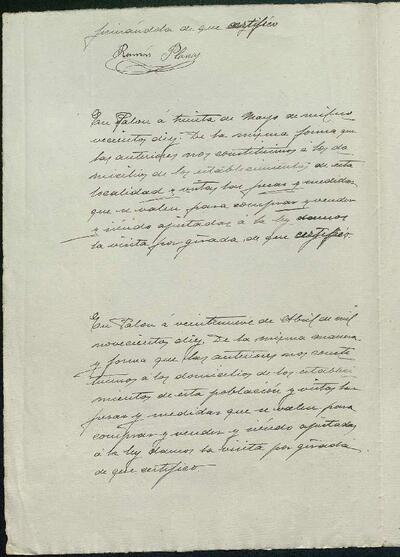 firmándola de que certifico
Ramón Planas
En Palou á treinta de Mayo de mil no-
vecientos diez. De la misma forma que
las anteriores nos constituimos á los do-
micilios de los establecimientos de esta
localidad y vistas las pesas y medidas
que se valen para comprar y vender
y siendo ajustadas á la ley damos
la visita por girada de que certifico.
En Palou á veintinueve de Abril de mil
novecientos diez. De la misma manera
y forma que las anteriores nos consti-
tuimos á los domicilios de los estableci-
mientos de esta población y vistas las
pesas y medidas que se valen para
comprar y vender y siendo ajustadas
á la ley damos la visita por girada
de que certifico